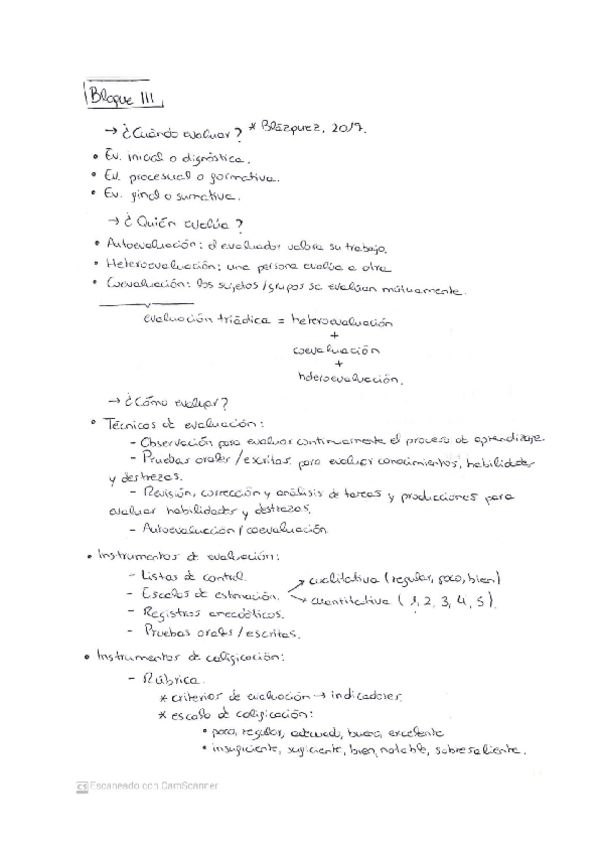 Bloque III
→ ¿Cuándo evaluar? * Blázquez, 2017.
• Ev. inicial o diagnóstica.
• Ev. procesual o formativa.
• Ev. final o sumativa.
→ ¿Quién evalúa?
• Autoevaluación: el evaluador valora su trabajo.
• Heteroevaluación: una persona evalúa a otra
• Coevaluación: los sujetos/grupos se evalúan mutuamente.
evaluación triádica = heteroevaluación
+
coevaluación
+
heteroevaluación.
→ ¿Cómo evaluar?
• Técnicas de evaluación:
- Observación para evaluar continuamente el proceso de aprendizaje.
- Pruebas orales/escritas para evaluar conocimientos, habilidades
y destrezas.
- Revisión, corrección y análisis de tareas y producciones para
evaluar habilidades y destrezas.
- Autoevaluación/coevaluación
• Instrumentos de evaluación:
- Listas de control.
- Escalas de estimación. → cualitativa (regular, poco, bien)
→ cuantitativa (1, 2, 3, 4, 5).
- Registros anecdóticos.
- Pruebas orales/escritas.
• Instrumentos de calificación:
- Rúbrica.
* criterios de evaluación → indicadores.
* escala de calificación:
• poco, regular, adecuad, bueno, excelente
• insuficiente, suficiente, bien, notable, sobresaliente.
CS Escaneado con CamScanner